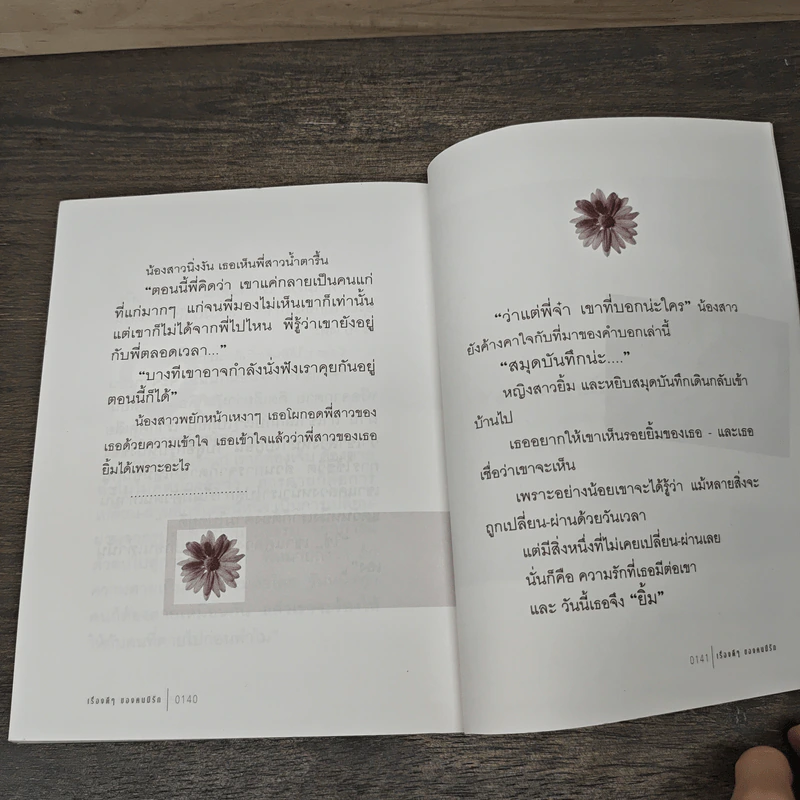 น้องสาวนิ่งงัน เธอเห็นพี่สาวน้ำตารื้น
“ตอนนี้พี่คิดว่า เขาแค่กลายเป็นคนแก่
ที่แก่มากๆ แก่จนพี่มองไม่เห็นเขาก็เท่านั้น
แต่เขาก็ไม่ได้จากพี่ไปไหน พี่รู้ว่าเขายังอยู่
กับพี่ตลอดเวลา...”
“บางทีเขาอาจกำลังนั่งฟังเราคุยกันอยู่
ตอนนี้ก็ได้”
น้องสาวพยักหน้าเหงาๆ เธอโผกอดพี่สาวของ
เธอด้วยความเข้าใจ เธอเข้าใจแล้วว่าพี่สาวของเธอ
ยิ้มได้เพราะอะไร
............................
เรื่องดีๆ ของคนมีรัก 0140
“ว่าแต่พี่จ๋า เขาที่บอกน่ะใคร” น้องสาว
ยังค้างคาใจกับที่มาของคำบอกเล่านี้
“สมุดบันทึกน่ะ....”
หญิงสาวยิ้ม และหยิบสมุดบันทึกเดินกลับเข้า
บ้านไป
เธออยากให้เขาเห็นรอยยิ้มของเธอ - และเธอ
เชื่อว่าเขาจะเห็น
เพราะอย่างน้อยเขาจะได้รู้ว่า แม้หลายสิ่งจะ
ถูกเปลี่ยน-ผ่านด้วยวันเวลา
แต่มีสิ่งหนึ่งที่ไม่เคยเปลี่ยน-ผ่านเลย
นั่นก็คือ ความรักที่เธอมีต่อเขา
และ วันนี้เธอจึง “ยิ้ม”
0141 เรื่องดีๆ ของคนมีรัก